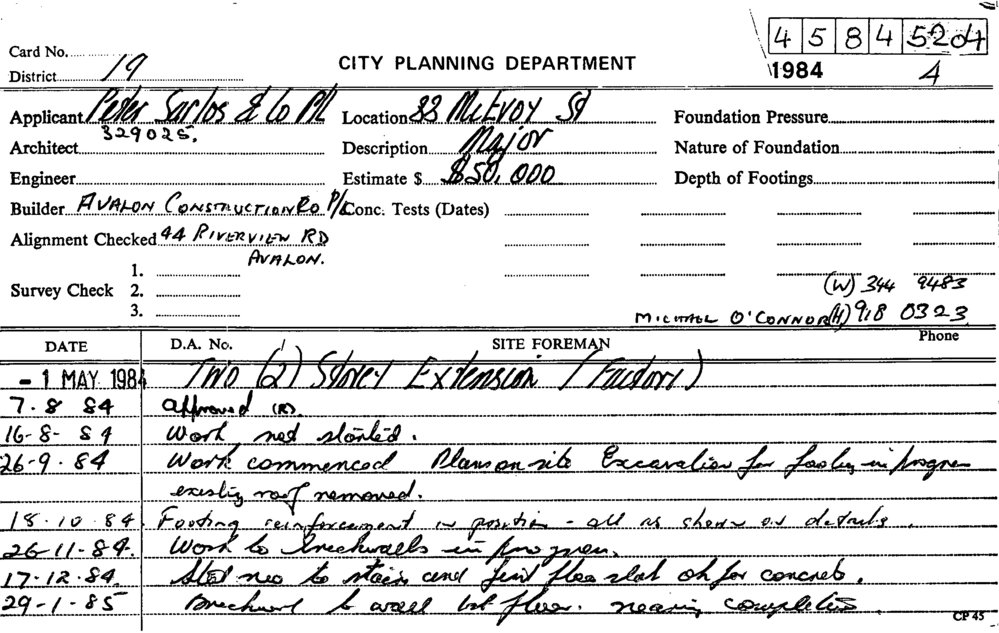 4 5 8 4 5204
Card No.
CITY PLANNING DEPARTMENT
1984 4
District 19
Applicant Peter Sarlos & Co P/L Location 88 McEvoy St Foundation Pressure
329025.
Architect Description Major Nature of Foundation
Engineer Estimate $ $50,000 Depth of Footings
Builder AVALON CONSTRUCTION CO P/L Conc. Tests (Dates)
Alignment Checked 44 RIVERVIEW RD
AVALON.
1.
Survey Check 2. (W) 344 9483
3. MICHAEL O'CONNOR (H) 918 0323
DATE D.A. No. SITE FOREMAN Phone
- 1 MAY 1984 Two (2) Storey Extension (Factory)
7.8 84 approved (R).
16-8-84 Work not started.
26-9.84 Work commenced Plans on site Excavation for footing in progress
existing roof removed.
18.10.84. Footing reinforcement in position - all as shown on details.
26-11-84. Work to brickwalls in progress.
17.12.84. Steel reo to stairs and first floor slab ok for concrete.
29-1-85 Brickwork to walls 1st floor. nearing completion
CP 45